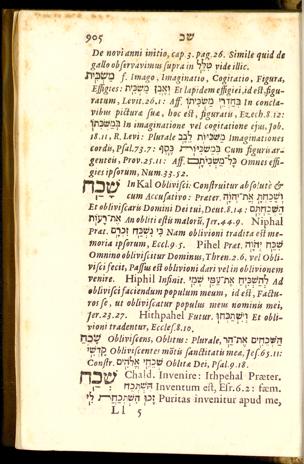 905 שכ
De novi anni initio, cap 3. pag. 26. Simile quid de
gallo observavimus supra in vide illic.
מַשְׂכִּית f. Imago, Imaginatio, Cogitatio, Figura,
Effigies: וְאֶבֶן מַשְׂכִּית Et lapidem effigiei, id est, figu-
ratum, Levit. 26.1: Aff. בְּחַדְרֵי מַשְׂכִּתוֹ In concla-
vibus picturæ suæ, hoc est, figuratis, Ezech. 8.12:
In imaginatione vel cogitatione ejus, Job.
18.11, R. Levi: Plurale מַשְׂכִּיּוֹת לֵבָב Imaginationes
cordis, Psal. 73.7: בְּמַשְׂכִּיּוֹת כָּסֶף Cum figuris ar-
genteis, Prov. 25.11: Aff. כָּל־מַשְׂכִּיֹּתָם Omnes effi-
gies ipsorum, Num. 33.52.
שָׁכַח In Kal Oblivisci: Construitur absolutè &
cum Accusativo: Præter. וְשָׁכַחַתְּ אֶת־יְהוָה
Et obliviscaris Domini Dei tui, Deut. 8.14: הַשְׁכַחְתֶּם
אֶת־רָעוֹת An obliti estis malorũ, Jer. 44.9. Niphal
Præt. כִּי נִשְׁכַּח זִכְרָם Nam oblivioni tradita est me-
moria ipsorum, Eccl. 9.5. Pihel Præt. שִׁכַּח יְהוָה
Omnino oblivisci tur Dominus, Thren. 2.6, vel Obli-
visci fecit, Passus est oblivioni dari vel in oblivionem
venire. Hiphil Infinit. לְהַשְׁכִּיחַ אֶת־עַמִּי שְׁמִי Ad
oblivisci faciendum populum meum, id est, Factu-
ros se, ut obliviscatur populus meus nominis mei,
Jer. 23.27. Hithpahel Futur. וְיִשְׁתַּכְּחוּ Et obli-
vioni tradentur, Eccles. 8.10.
שָׁכֵחַ Obliviscens, Oblitus: Plurale, הַשְּׁכֵחִים אֶת־הַר
קָדְשִׁי Obliviscentes mõtis sanctitatis meæ, Jes. 65.11:
Constr. שְׁכֵחֵי אֱלֹהִים Oblitæ Dei, Psal. 9.18.
שְׁכַח Chald. Invenire: Ithpehal Præter.
הִשְׁתְּכַח Inventum est, Esr. 6.2: fœm.
זָכוּ הִשְׁתְּכַחַת לִי Puritas invenitur apud me,
Ll 5